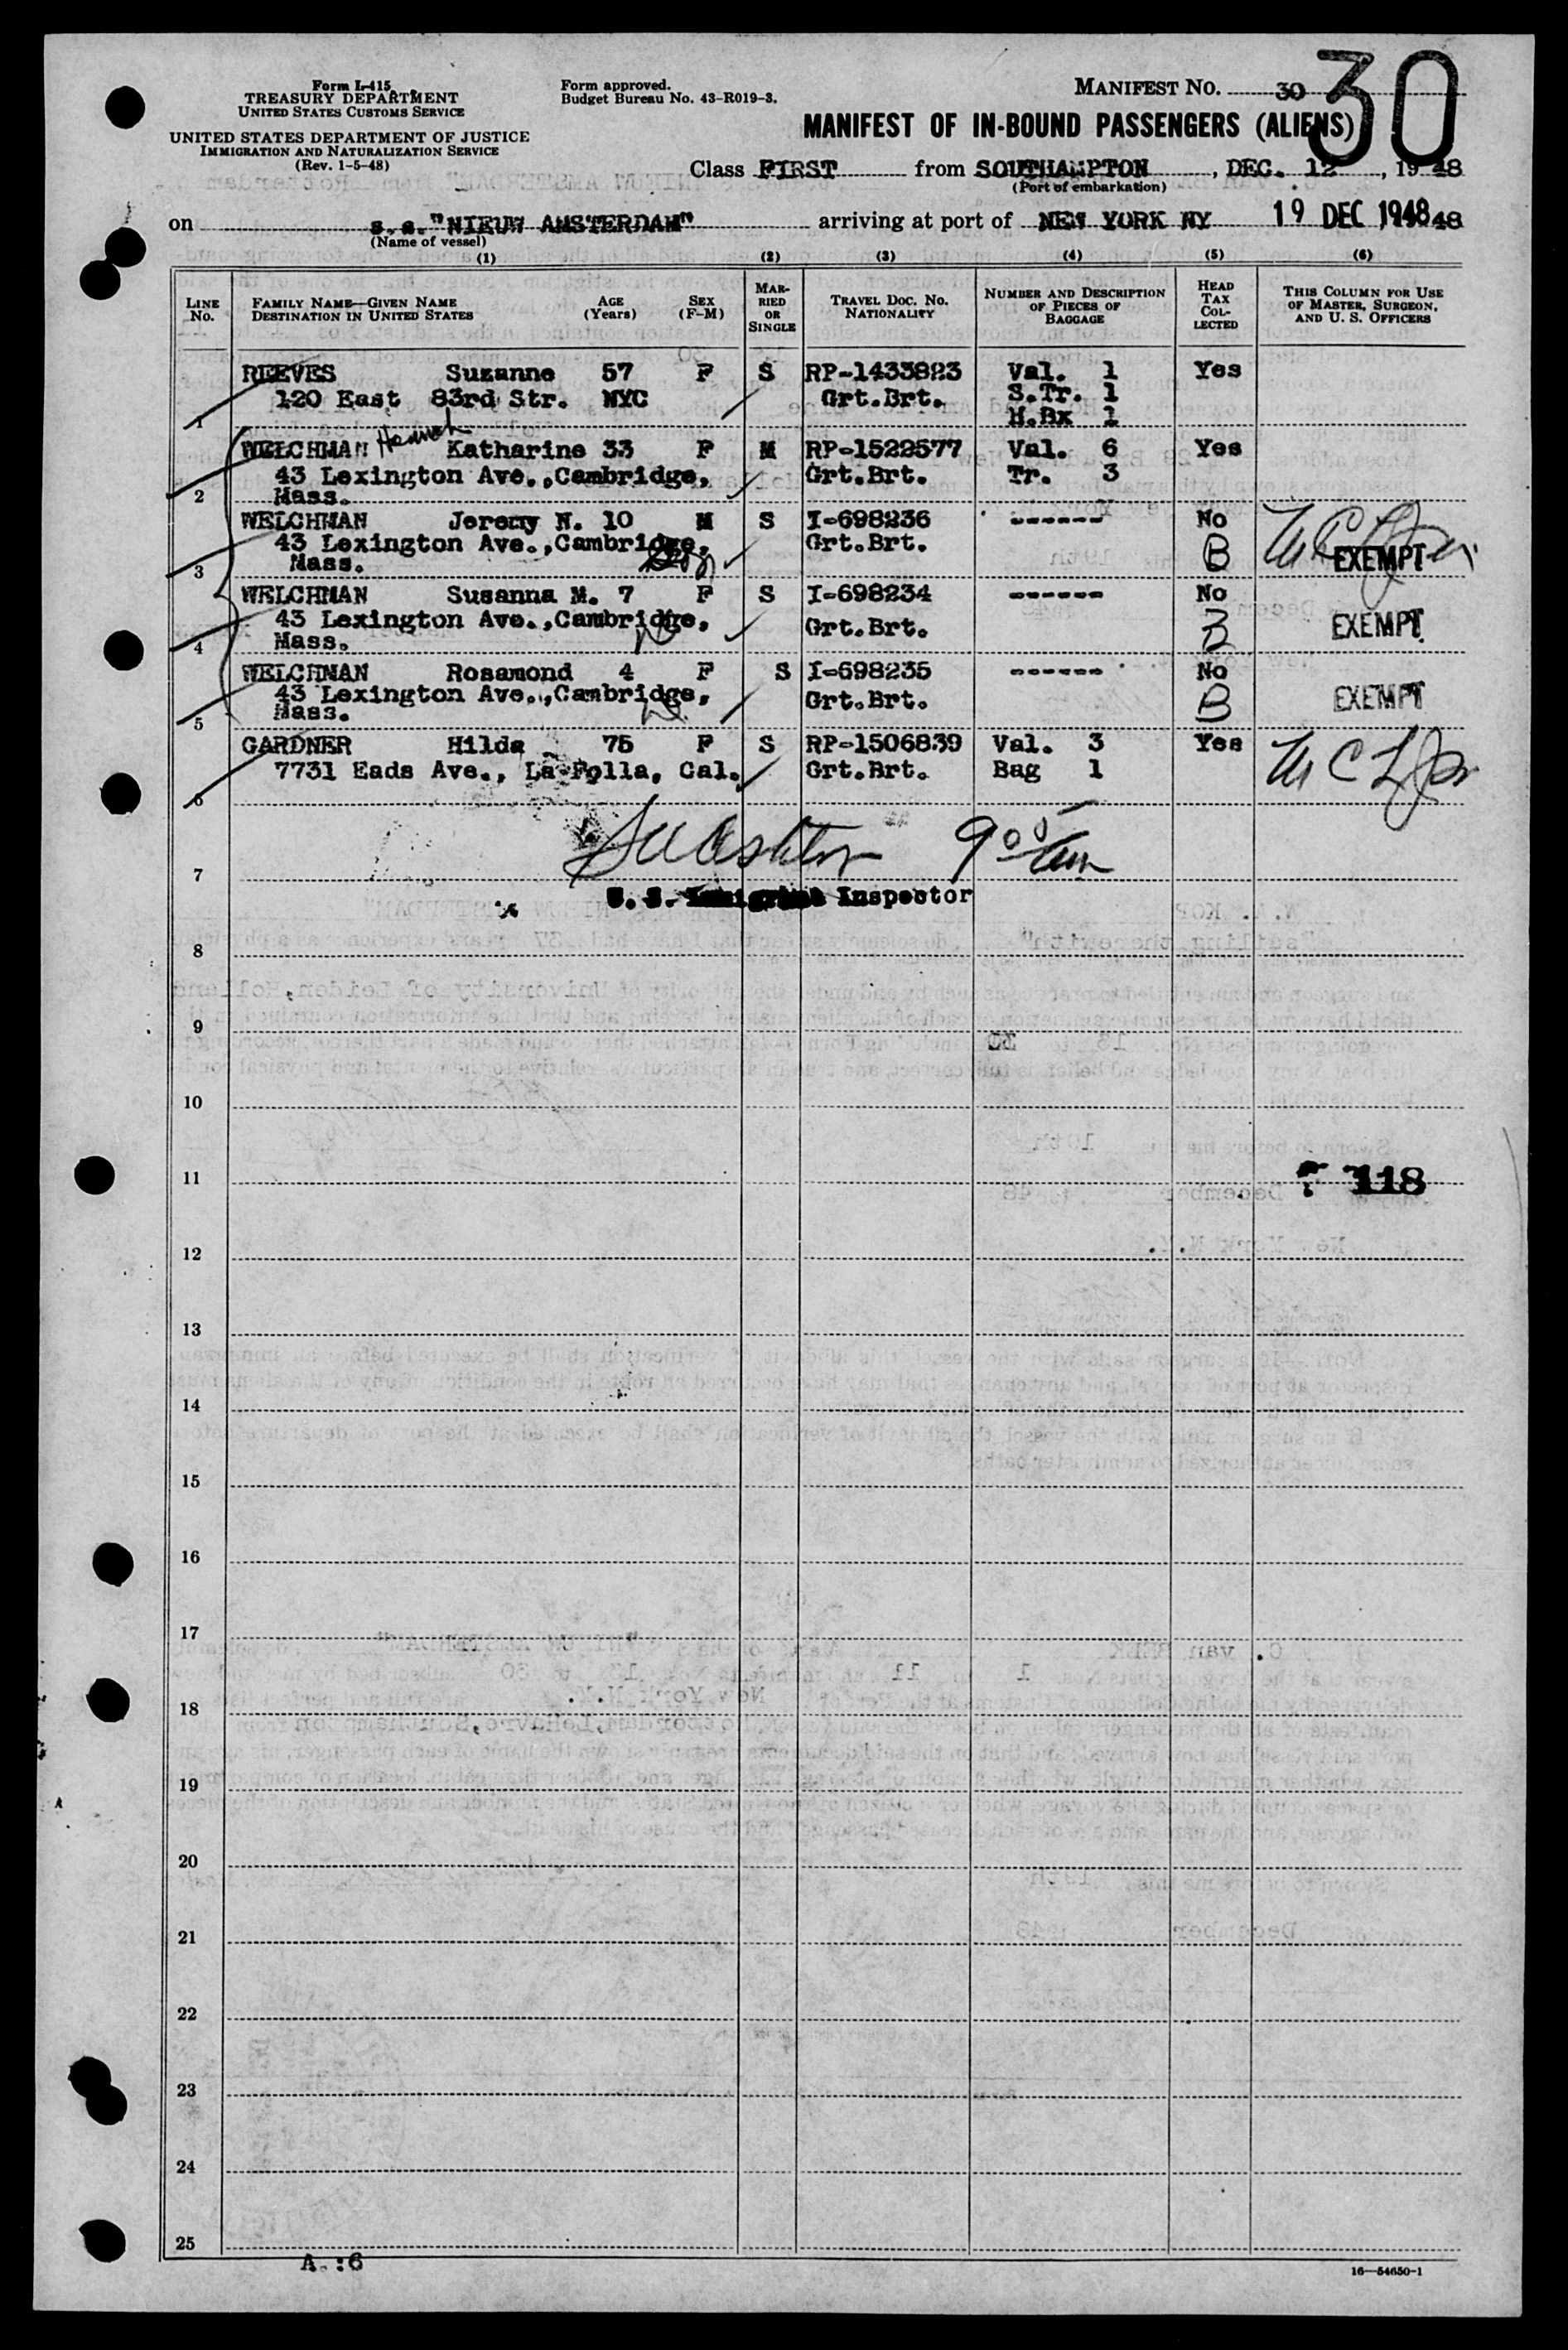 Form I-415
TREASURY DEPARTMENT
UNITED STATES CUSTOMS SERVICE
UNITED STATES DEPARTMENT OF JUSTICE
IMMIGRATION AND NATURALIZATION SERVICE
(Rev. 1-5-48)
Form approved.
Budget Bureau No. 43-R019-3.
MANIFEST NO. 30
30
MANIFEST OF IN-BOUND PASSENGERS (ALIENS)
Class FIRST from SOUTHAMPTON, DEC. 12, 1948
(Port of embarkation)
on s.s. "NIEUW AMSTERDAM" arriving at port of NEW YORK NY 19 DEC 1948 48
(Name of vessel)
(1) (2) (3) (4) (5) (6)
LINE NO. FAMILY NAME—GIVEN NAME DESTINATION IN UNITED STATES AGE (Years) SEX (F-M) MARRIED OR SINGLE TRAVEL DOC. NO. NATIONALITY NUMBER AND DESCRIPTION OF PIECES OF BAGGAGE HEAD TAX COLLECTED THIS COLUMN FOR USE OF MASTER, SURGEON, AND U. S. OFFICERS
REEVES Suzanne 57 F S RP-1433823 Val. 1 Yes
120 East 83rd Str. NYC Grt.Brt. S.Tr. 1
1 H.Bx 1
WELCHMAN Hannah Katharine 33 F M RP-1522577 Val. 6 Yes
43 Lexington Ave.,Cambridge, Grt.Brt. Tr. 3
2 Mass.
WELCHMAN Jeremy N. 10 M S I-698236 ------ No
43 Lexington Ave.,Cambridge, Grt.Brt. B EXEMPT
3 Mass.
WELCHMAN Susanna M. 7 F S I-698234 ------ No
43 Lexington Ave.,Cambridge, Grt.Brt. B EXEMPT
4 Mass.
WELCHMAN Rosamond 4 F S I-698235 ------ No
43 Lexington Ave.,Cambridge, Grt.Brt. B EXEMPT
5 Mass.
GARDNER Hilda 75 F S RP-1506839 Val. 3 Yes
7731 Eads Ave., La Folla, Cal. Grt.Brt. Bag 1
6
7
U. S. Immigrant Inspector
8
9
10
11
118
12
13
14
15
16
17
18
19
20
21
22
23
24
25
A.:6
16—54650-1